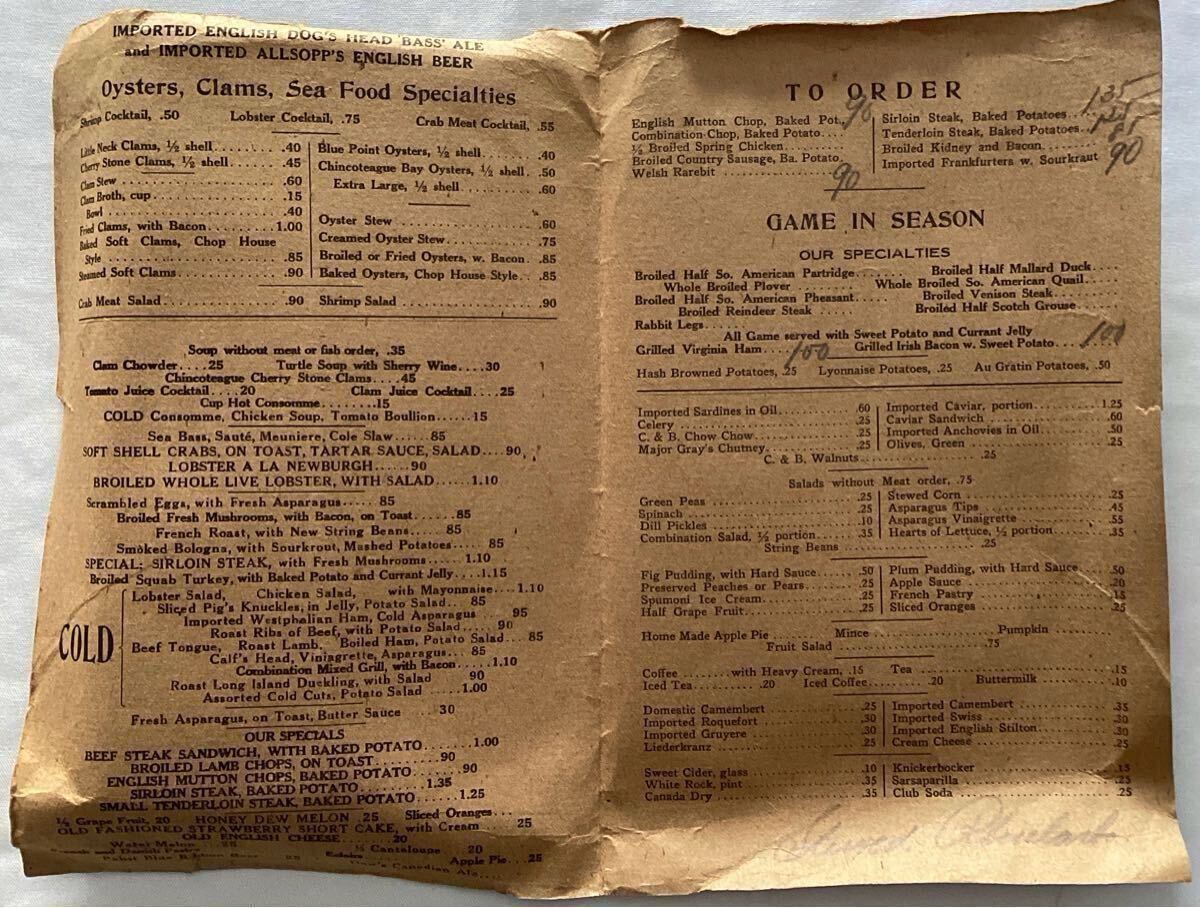 IMPORTED ENGLISH DOG'S HEAD 'BASS' ALE
and IMPORTED ALLSOPP'S ENGLISH BEER
Oysters, Clams, Sea Food Specialties
Shrimp Cocktail, .50 Lobster Cocktail, .75 Crab Meat Cocktail, .55
Little Neck Clams, ½ shell .40
Cherry Stone Clams, ½ shell .45
Clam Stew .60
Clam Broth, cup .15
Bowl .40
Fried Clams, with Bacon 1.00
Baked Soft Clams, Chop House
Style .85
Steamed Soft Clams .90
Blue Point Oysters, ½ shell .40
Chincoteague Bay Oysters, ½ shell .50
Extra Large, ½ shell .60
Oyster Stew .60
Creamed Oyster Stew .75
Broiled or Fried Oysters, w. Bacon .85
Baked Oysters, Chop House Style .85
Crab Meat Salad .90 Shrimp Salad .90
Soup without meat or fish order, .35
Clam Chowder....25 Turtle Soup with Sherry Wine....30
Chincoteague Cherry Stone Clams....45
Tomato Juice Cocktail....20 Clam Juice Cocktail....25
Cup Hot Consomme......15
COLD Consomme, Chicken Soup, Tomato Boullion.....15
Sea Bass, Sauté, Meuniere, Cole Slaw.....85
SOFT SHELL CRABS, ON TOAST, TARTAR SAUCE, SALAD....90
LOBSTER A LA NEWBURGH.....90
BROILED WHOLE LIVE LOBSTER, WITH SALAD.....1.10
Scrambled Eggs, with Fresh Asparagus.... 85
Broiled Fresh Mushrooms, with Bacon, on Toast.....85
French Roast, with New String Beans.... 85
Smoked Bologna, with Sourkrout, Mashed Potatoes....85
SPECIAL: SIRLOIN STEAK, with Fresh Mushrooms....1.10
Broiled Squab Turkey, with Baked Potato and Currant Jelly....1.15
COLD
Lobster Salad, Chicken Salad, with Mayonnaise....1.10
Sliced Pig's Knuckles, in Jelly, Potato Salad.... 85
Imported Westphalian Ham, Cold Asparagus 95
Roast Ribs of Beef, with Potato Salad.... 90
Beef Tongue, Roast Lamb, Boiled Ham, Potato Salad....85
Calf's Head, Viniagrette, Asparagus.... 85
Combination Mixed Grill, with Bacon.....1.10
Roast Long Island Duckling, with Salad 90
Assorted Cold Cuts, Potato Salad .....1.00
Fresh Asparagus, on Toast, Butter Sauce .... 30
OUR SPECIALS
BEEF STEAK SANDWICH, WITH BAKED POTATO.......1.00
BROILED LAMB CHOPS, ON TOAST.......90
ENGLISH MUTTON CHOPS, BAKED POTATO.......90
SIRLOIN STEAK, BAKED POTATO.......1.35
SMALL TENDERLOIN STEAK, BAKED POTATO.......1.25
½ Grape Fruit, 20 HONEY DEW MELON .25 Sliced Oranges....
OLD FASHIONED STRAWBERRY SHORT CAKE, with Cream .... 25
OLD ENGLISH CHEESE........20
Water Melon ... 25 ½ Cantaloupe 20
and Danish Pastry Eclairs Apple Pie....25
Pabst Blue Ribbon Beer 25 Canadian Ale....
TO ORDER
English Mutton Chop, Baked Pot. 90
Combination Chop, Baked Potato
½ Broiled Spring Chicken
Broiled Country Sausage, Ba. Potato
Welsh Rarebit 90
Sirloin Steak, Baked Potatoes 135
Tenderloin Steak, Baked Potatoes
Broiled Kidney and Bacon 85
Imported Frankfurters w. Sourkraut 90
GAME IN SEASON
OUR SPECIALTIES
Broiled Half So. American Partridge Broiled Half Mallard Duck
Whole Broiled Plover Whole Broiled So. American Quail
Broiled Half So. American Pheasant Broiled Venison Steak
Broiled Reindeer Steak Broiled Half Scotch Grouse
Rabbit Legs
All Game served with Sweet Potato and Currant Jelly
Grilled Virginia Ham 100 Grilled Irish Bacon w. Sweet Potato 100
Hash Browned Potatoes, .25 Lyonnaise Potatoes, .25 Au Gratin Potatoes, .50
Imported Sardines in Oil .60
Celery .25
C. & B. Chow Chow .25
Major Gray's Chutney .25
Imported Caviar, portion 1.25
Caviar Sandwich .60
Imported Anchovies in Oil .50
Olives, Green .25
C. & B. Walnuts .25
Salads without Meat order, .75
Green Peas .25
Spinach .25
Dill Pickles .10
Combination Salad, ½ portion .35
Stewed Corn .25
Asparagus Tips .45
Asparagus Vinaigrette .55
Hearts of Lettuce, ½ portion .35
String Beans .25
Fig Pudding, with Hard Sauce .50
Preserved Peaches or Pears .25
Spumoni Ice Cream .25
Half Grape Fruit .25
Plum Pudding, with Hard Sauce .50
Apple Sauce .20
French Pastry .15
Sliced Oranges .25
Home Made Apple Pie Mince Pumpkin
Fruit Salad .75
Coffee with Heavy Cream, .15 Tea .15
Iced Tea .20 Iced Coffee .20 Buttermilk .10
Domestic Camembert .25
Imported Roquefort .30
Imported Gruyere .30
Liederkranz .25
Imported Camembert .35
Imported Swiss .30
Imported English Stilton .30
Cream Cheese .25
Sweet Cider, glass .10
White Rock, pint .35
Canada Dry .35
Knickerbocker .15
Sarsaparilla .25
Club Soda .25